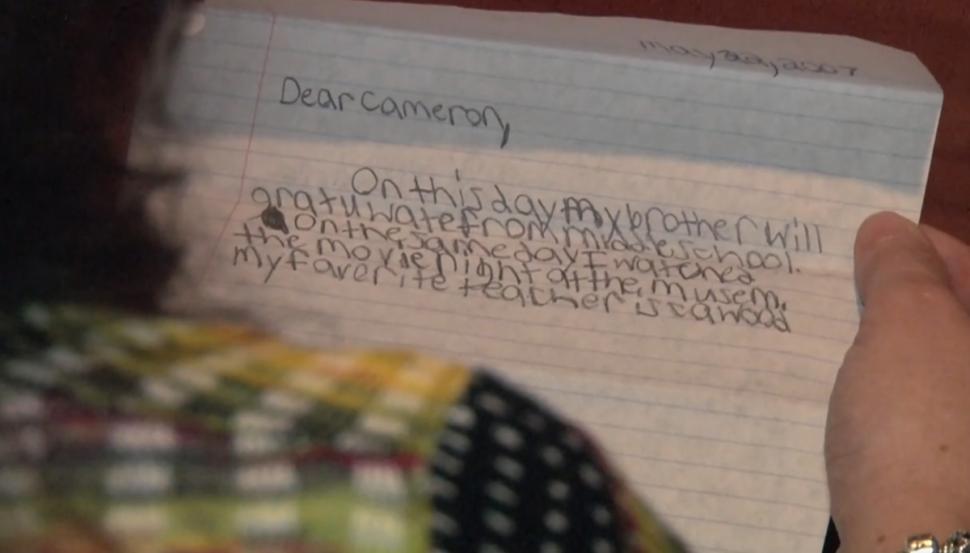 may 22, 2007
Dear Cameron,
On this day my brother will
gratuwate from middle school.
On the same day I watched
the movie night at the musem.
My faverite teacher is